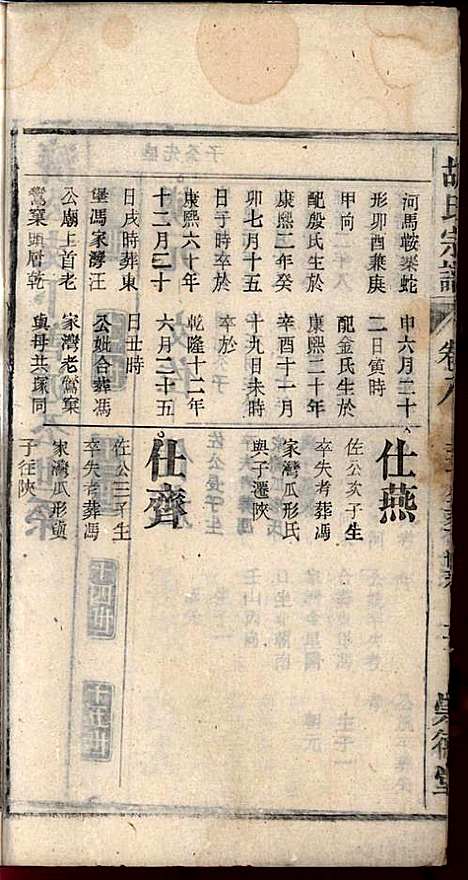 胡氏宗譜 卷八 崇德堂
河馬鞍柒蛇
形卯酉兼庚
甲向
配殷氏生於
康熙二年癸
卯七月十五
日子時卒於
康熙六十年
十二月二十
日戌時葬東
堡馮家灣汪
公廟上首老
鴛窠頭屆乾
申六月二十
二日寅時
配金氏生於
康熙二十年
辛酉十一月
十九日未時
卒於
乾隆十二年
六月二十五
日丑時
公妣合葬馮
家灣老鴛窠
與母共塚同
仕燕
佐公次子生
卒失考葬馮
家灣瓜形氏
與子遷陝
仕齊
佐公三子生
卒失考葬馮
家灣瓜形
子往陝